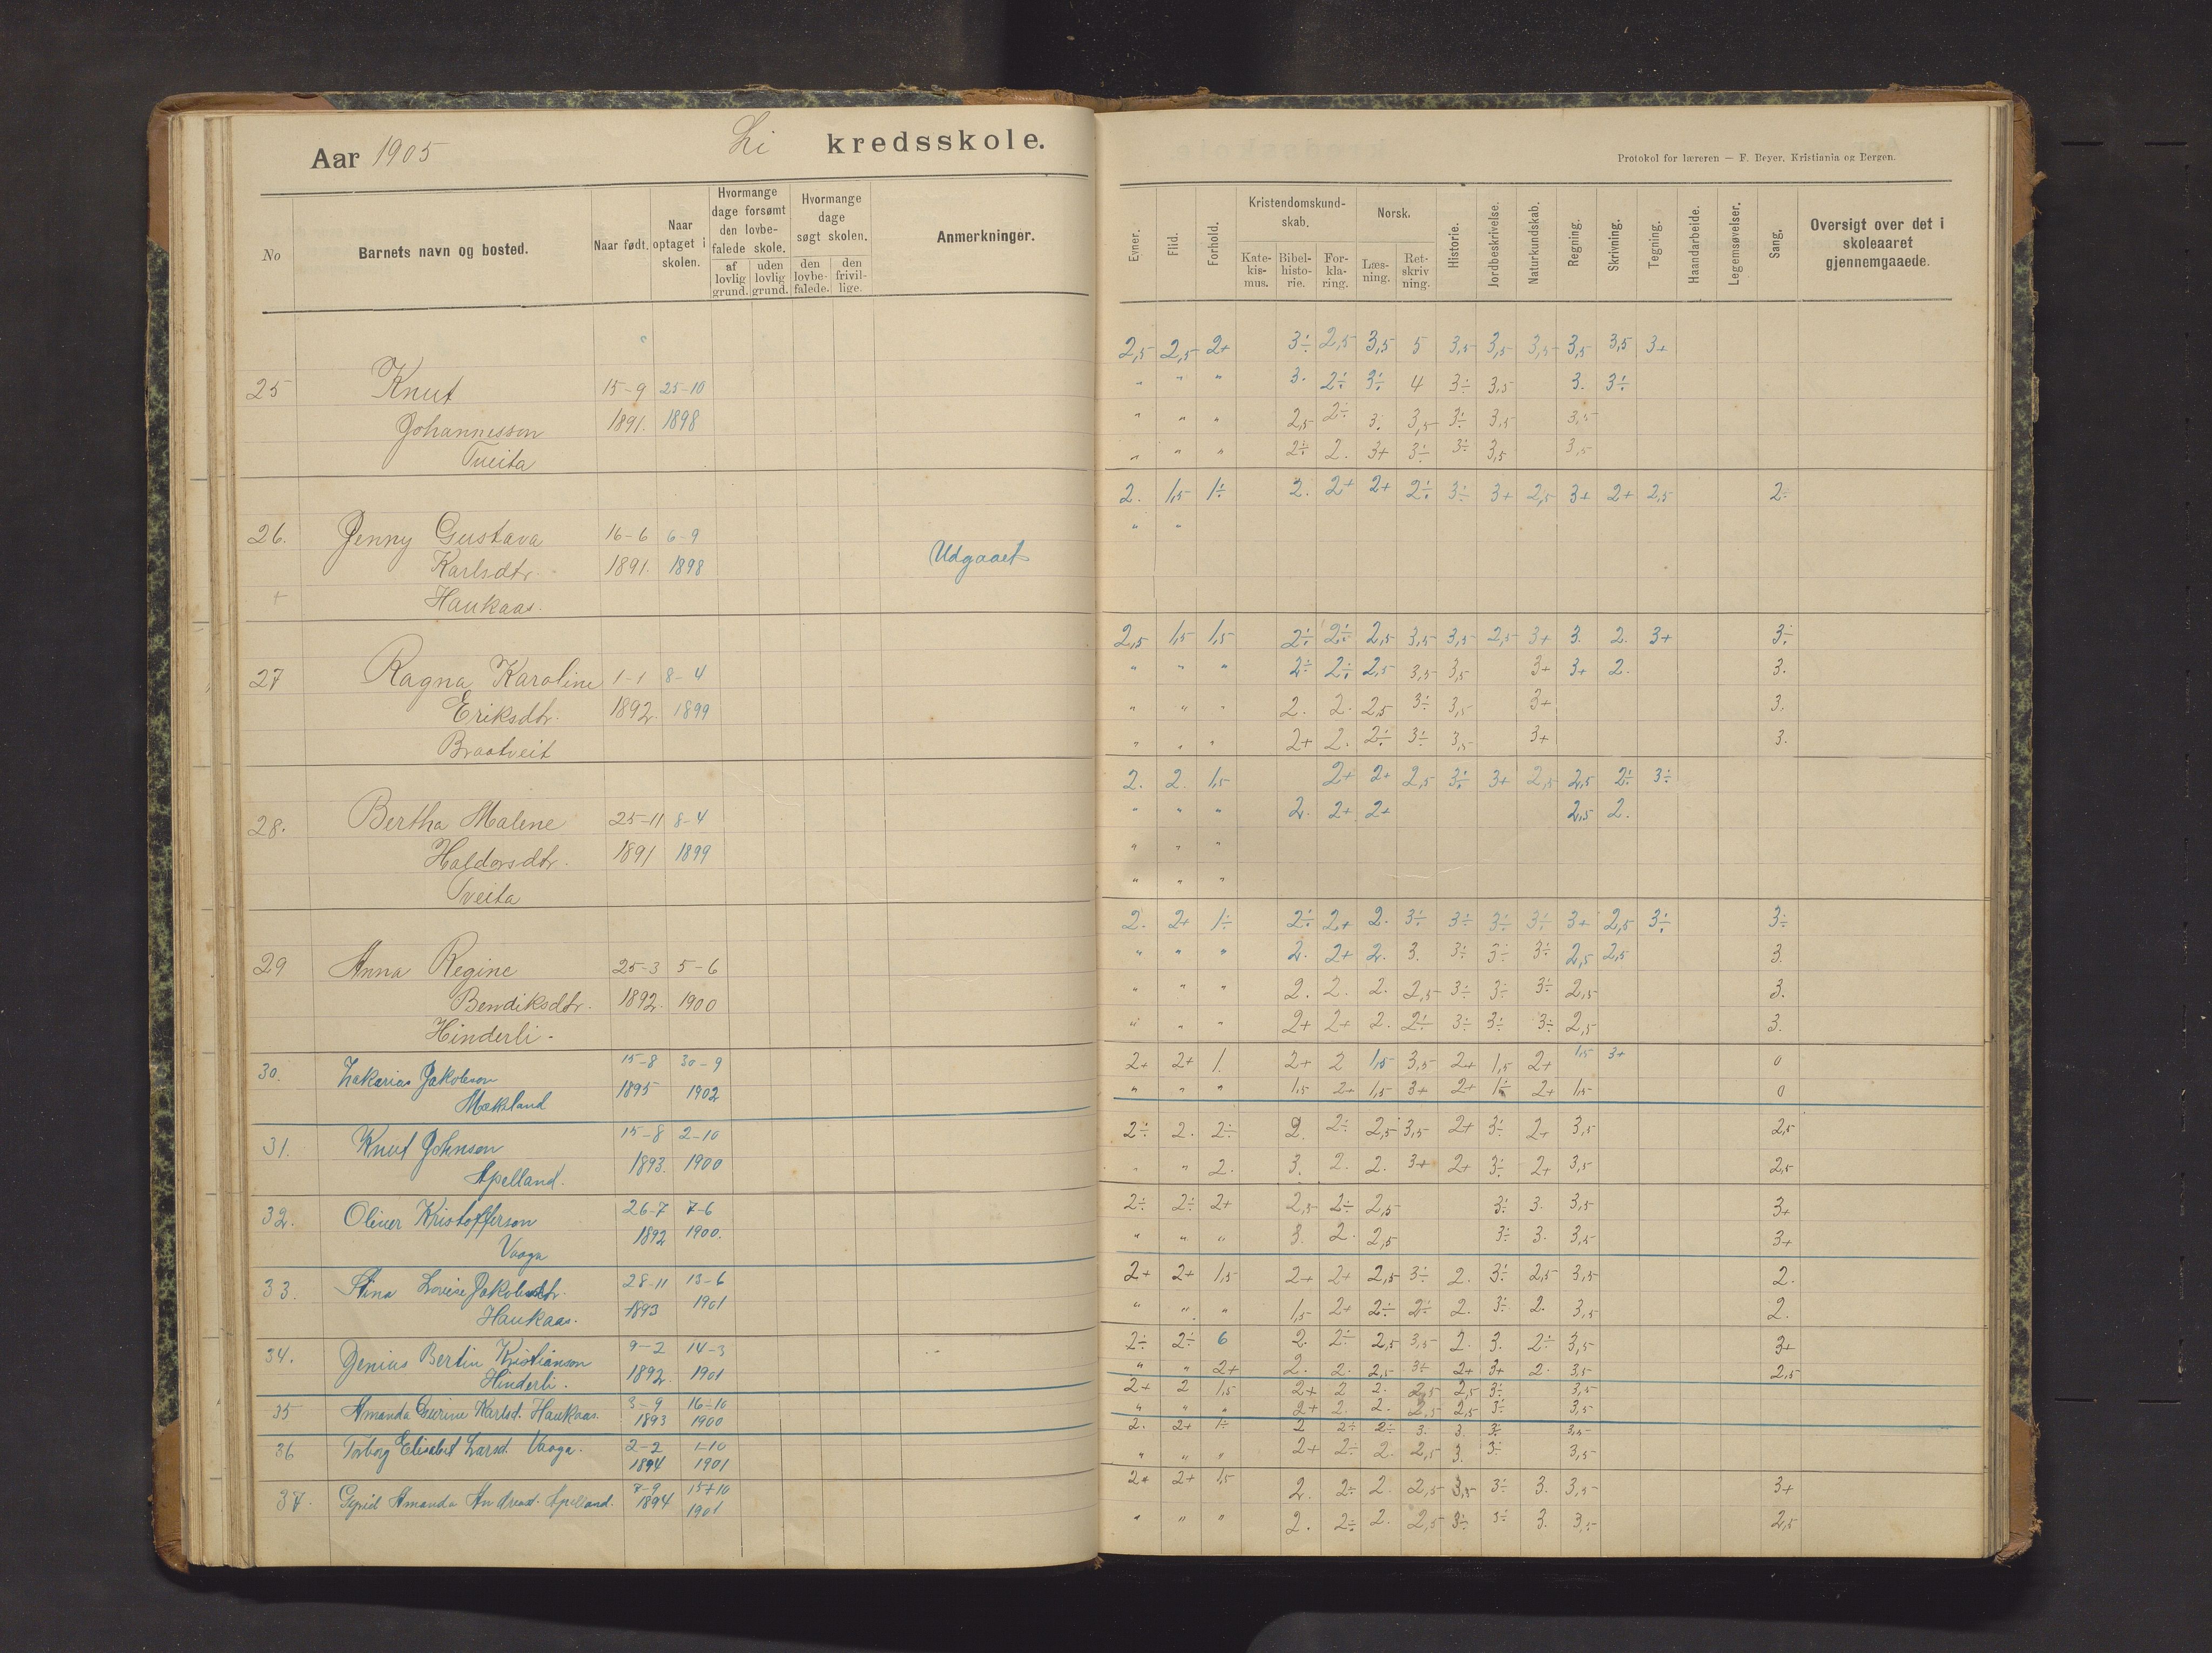 Aar 1905 Li kredsskole.
Protokol for læreren — F. Beyer. Kristiania og Bergen.
No Barnets navn og bosted. Naar født. Naar optaget i skolen. Hvormange dage forsømt den lovbefalede skole. af lovlig grund. uden lovlig grund. Hvormange dage søgt skolen. den lovbefalede. den frivillige. Anmerkninger.
Evner. Flid. Forhold. Kristendomskundskab. Katekismus. Bibelhistorie. Forklaring. Norsk. Læsning. Retskrivning. Historie. Jordbeskrivelse. Naturkundskab. Regning. Skrivning. Tegning. Haandarbeide. Legemsøvelser. Sang. Oversigt over det i skoleaaret gjennemgaaede.
25 Knut 15-9 25-10
Johannesson 1891. 1898
Tveita
26. Jenny Gustava 16-6 6-9
Karlsdtr. 1891. 1898 Udgaaet
+ Haukaas.
27 Ragna Karoline 1-1 8-4
Eriksdtr. 1892. 1899
Braatveit
28. Bertha Malene 25-11 8-4
Haldorsdtr. 1891 1899
Tveita
29 Anna Regine 25-3 5-6
Bendiksdtr. 1892. 1900
Hinderli.
30. Zakarias Jakobson 15-8 30-9
Mækeland 1895 1902
31. Knut Johnson 15-8 2-10
Apelland. 1893. 1900
32. Oliver Kristofferson 26-7 7-6
Vaaga 1892 1900.
33. Stina Lovise Jakobsdtr. 28-11 13-6
Haukaas. 1893 1901
34. Jenius Bertin Kristianson 9-2 14-3
Hinderli. 1892. 1901
35 Amanda Gurine Karlsd. Haukaas. 3-9 16-10
1893 1900
36 Torborg Elisabet Larsd. Vaaga. 2-2 1-10
1894 1901
37. Gyrid Amanda Andreasd. Apelland. 7-9 15-10
1894 1901
2,5 2,5 2+ 3÷ 2,5 3,5 5 3,5 3,5 3,5 3,5 3,5 3+
" " " 3. 2÷ 3÷ 4 3÷ 3,5 3. 3÷
" " " 2,5 2÷ 3. 3,5 3÷ 3,5 3,5
" " " 2÷ 2. 3+ 3÷ 3÷ 3,5 3,5
2. 1,5 1÷ 2. 2+ 2+ 2÷ 3÷ 3+ 2,5 3+ 2+ 2,5 2÷
" "
2,5 1,5 1,5 2÷ 2÷ 2,5 3,5 3,5 2,5 3+ 3. 2. 3+ 3÷
" " " 2÷ 2÷ 2,5 3,5 3,5 3+ 3+ 2. 3.
" " " 2. 2. 2,5 3÷ 3,5 3+ 3.
" " " 2+ 2. 2÷ 3÷ 3,5 3+ 3.
2. 2. 1,5 2+ 2+ 2,5 3÷ 3+ 2,5 2,5 2÷ 3÷
" " " 2. 2+ 2+ 2,5 2.
" " "
" " "
2. 2+ 1÷ 2÷ 2+ 2. 3÷ 3÷ 3÷ 3÷ 3+ 2,5 3÷ 3÷
" " " 2. 2+ 2. 3. 3÷ 3÷ 3÷ 2,5 2,5 3.
" " " 2. 2. 2. 2,5 3÷ 3÷ 3÷ 2,5 3.
" " " 2+ 2+ 2. 2÷ 3÷ 3÷ 3÷ 2,5 3.
2+ 2+ 1. 2+ 2 1,5 3,5 2+ 1,5 2+ 1,5 3+ 0
" " " 1,5 2+ 1,5 3+ 2+ 1÷ 2+ 1,5 0
2÷ 2. 2÷ 2. 2÷ 2,5 3,5 2+ 3÷ 2+ 3,5 2,5
" " 2. 3. 2. 2. 3+ 2+ 3÷ 2+ 3,5 2,5
2÷ 2÷ 2+ 2,5 2÷ 2,5 3÷ 3. 3,5 3+
" " " 3. 2. 2,5 3÷ 3. 3,5 3+
2+ 2+ 1,5 2+ 2+ 2,5 3÷ 2. 3÷ 2,5 3,5 2.
" " " 1,5 2+ 2÷ 2÷ 2. 3÷ 2. 3,5 2.
2÷ 2÷ 6 2. 2÷ 2,5 3,5 2. 3. 2÷ 3,5 3+
" " 2+ 2. 2. 2,5 3÷ 2+ 3+ 2. 3,5 2,5
2+ 2 1,5 2+ 2 2. 2,5 2,5 3÷ 3,5
" " " 2+ 2. 2. 2,5 2,5 3÷ 3,5
2. 2+ 1÷ 2 2÷ 2÷ 3. 3. 3÷ 3,5
" " " 2+ 2÷ 2. 2,5 3. 3÷ 3,5
2+ 2+ 1,5 2. 2÷ 2. 2,5 3,5 3÷ 3. 3,5 3+
" " " 2. 2÷ 2. 2,5 3÷ 3÷ 3. 3,5 2,5